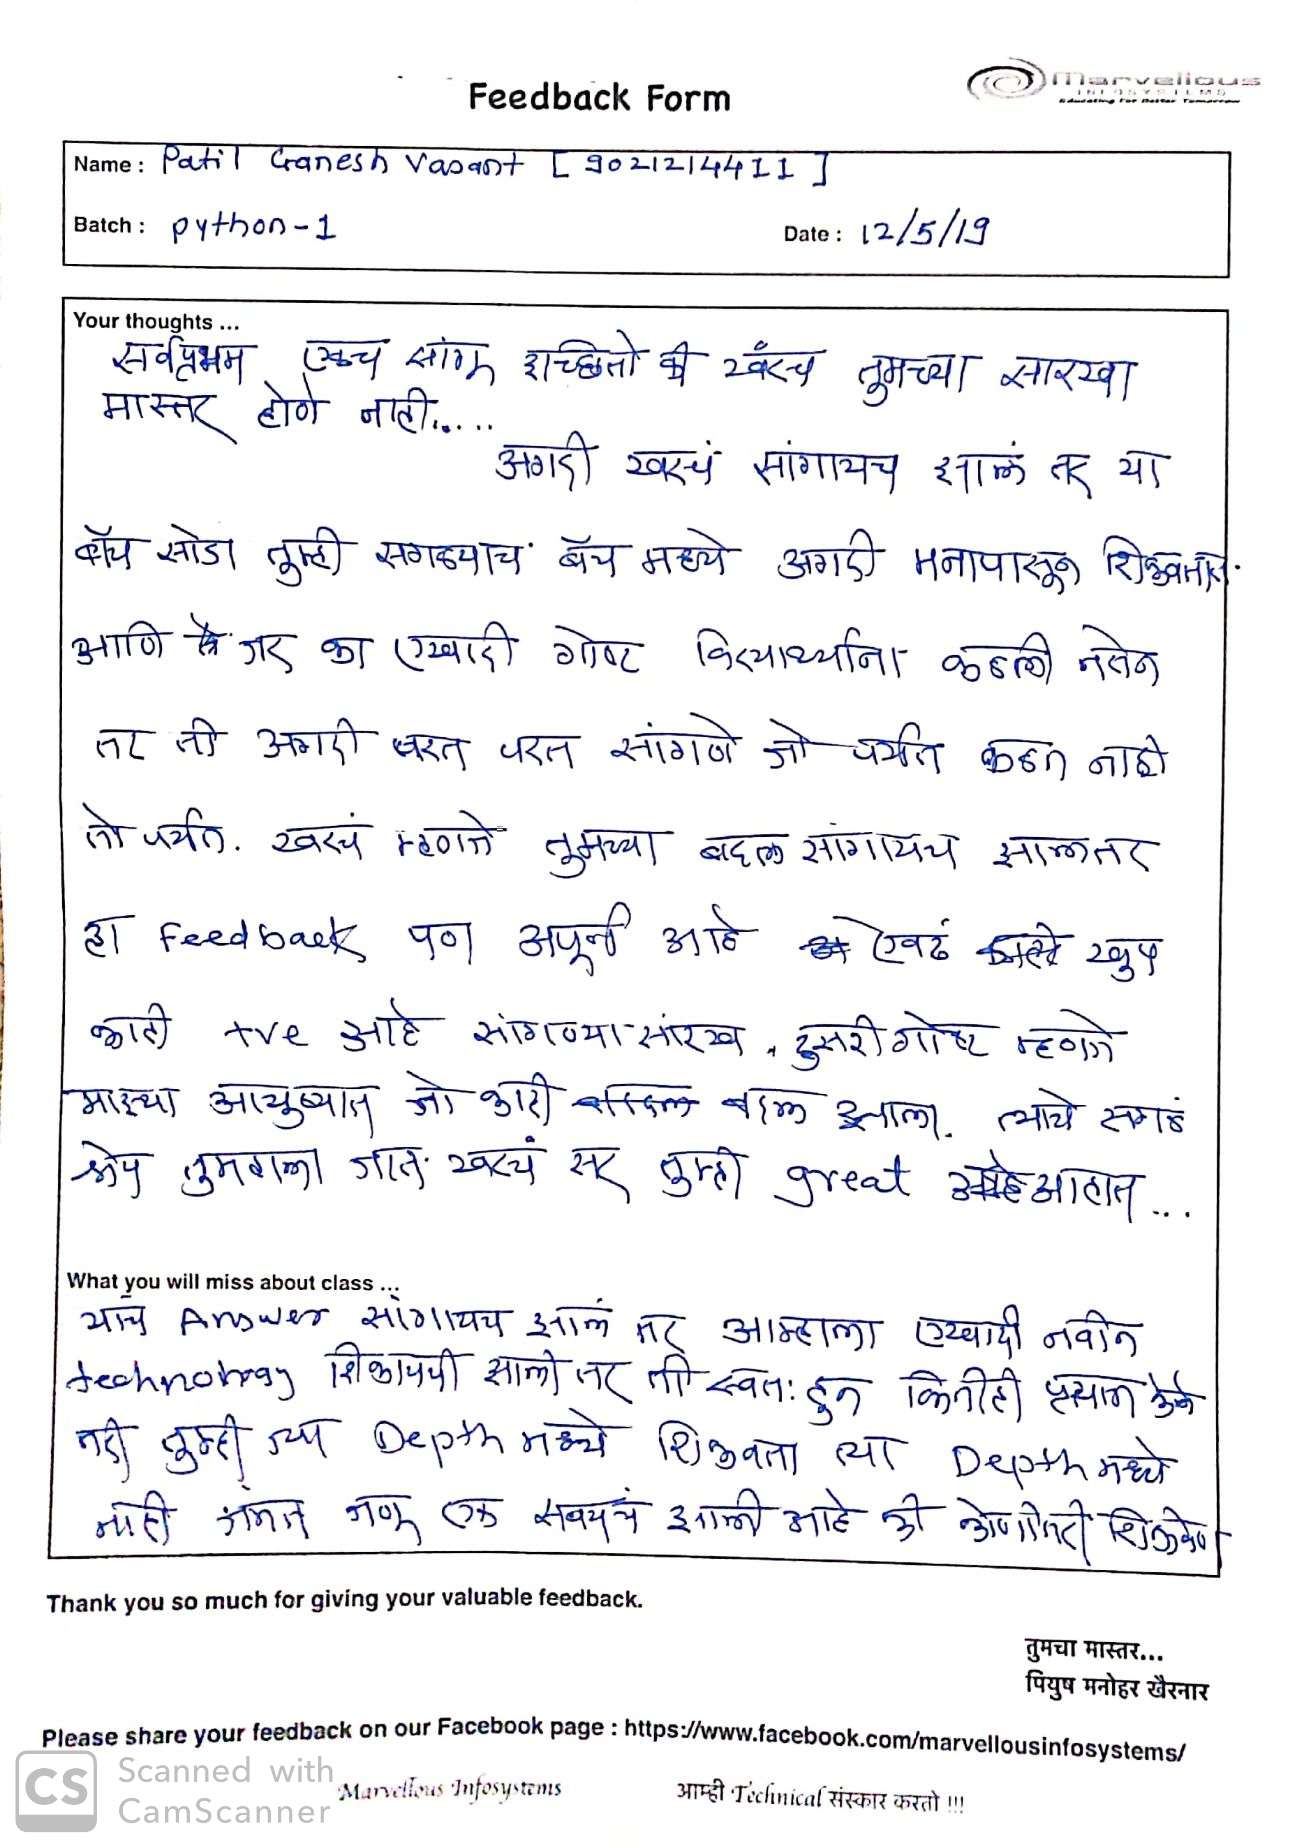 Feedback Form
Marvellous
INFOSYSTEMS
Educating For Better Tomorrow
Name : Patil Ganesh Vasant [ 9021214411 ]
Batch : python-1
Date : 12/5/19
Your thoughts ...
सर्वप्रथम एकच सांगू इच्छितो की खरंच तुमच्या सारखा
मास्तर होणे नाही.....
अगदी खरचं सांगायच झालं तर या
बॅच सोडा तुम्ही सगळ्याच बॅच मध्ये अगदी मनापासून शिकवतात.
आणि जर का एखादी गोष्ट विद्यार्थ्यांना कळली नसेन
तर ती अगदी परत परत सांगणे जो पर्यंत कळत नाही
तो पर्यंत. खरचं म्हणजे तुमच्या बद्दल सांगायच झालतर
हा Feedback पण अपूर्ण आहे एवढं खुप
काही +ve आहे सांगण्या सारख. दुसरी गोष्ट म्हणजे
माझ्या आयुष्यात जो काही बदल झाला. त्याचे सगळं
श्रेय तुम्हाला जात. खरचं सर तुम्ही great आहात...
What you will miss about class ...
याच Answer सांगायच झालं तर आम्हाला एखादी नवीन
technology शिकायची झाली तर ती स्वतः हुन कितीही प्रयत्न केले
तरी तुम्ही ज्या Depth मध्ये शिकवता त्या Depth मध्ये
नाही जमत जणू एक सवयच झाली आहे की कोणीतरी शिकवेण
Thank you so much for giving your valuable feedback.
तुमचा मास्तर...
पियुष मनोहर खैरनार
Please share your feedback on our Facebook page : https://www.facebook.com/marvellousinfosystems/
CS Scanned with
CamScanner
Marvellous Infosystems
आम्ही Technical संस्कार करतो !!!